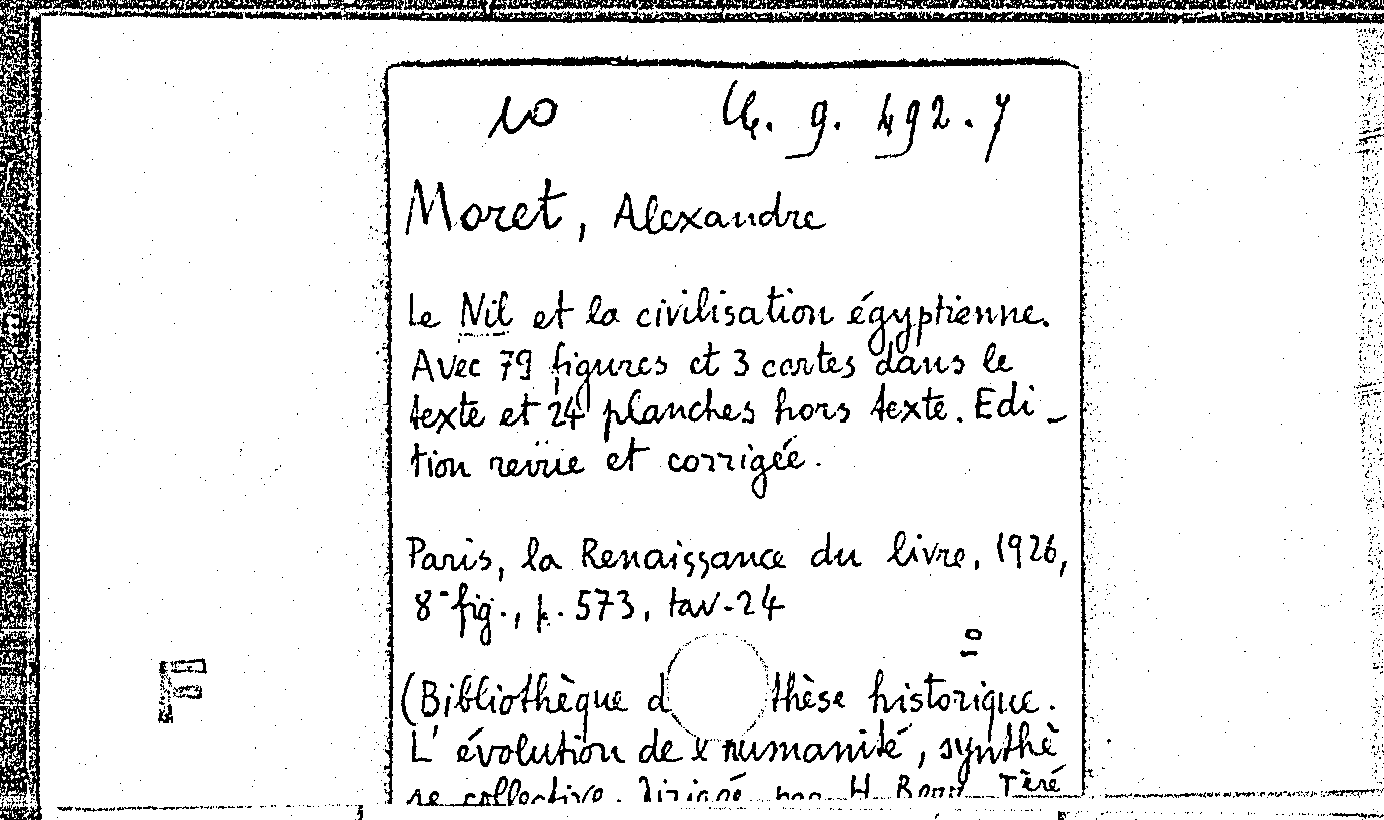 10 9. 492.7
Moret, Alexandre
Le Nil et la civilisation égyptienne.
Avec 79 figures et 3 cartes dans le
texte et 24 planches hors texte. Edi_
tion revüe et corrigée.
Paris, la Renaissance du livre, 1926,
8° fig., p. 573, tav. 24
(Bibliothèque d thèse historique.
L'évolution de l'humanité, synthè
se collective, dirigée par H. Berr
F